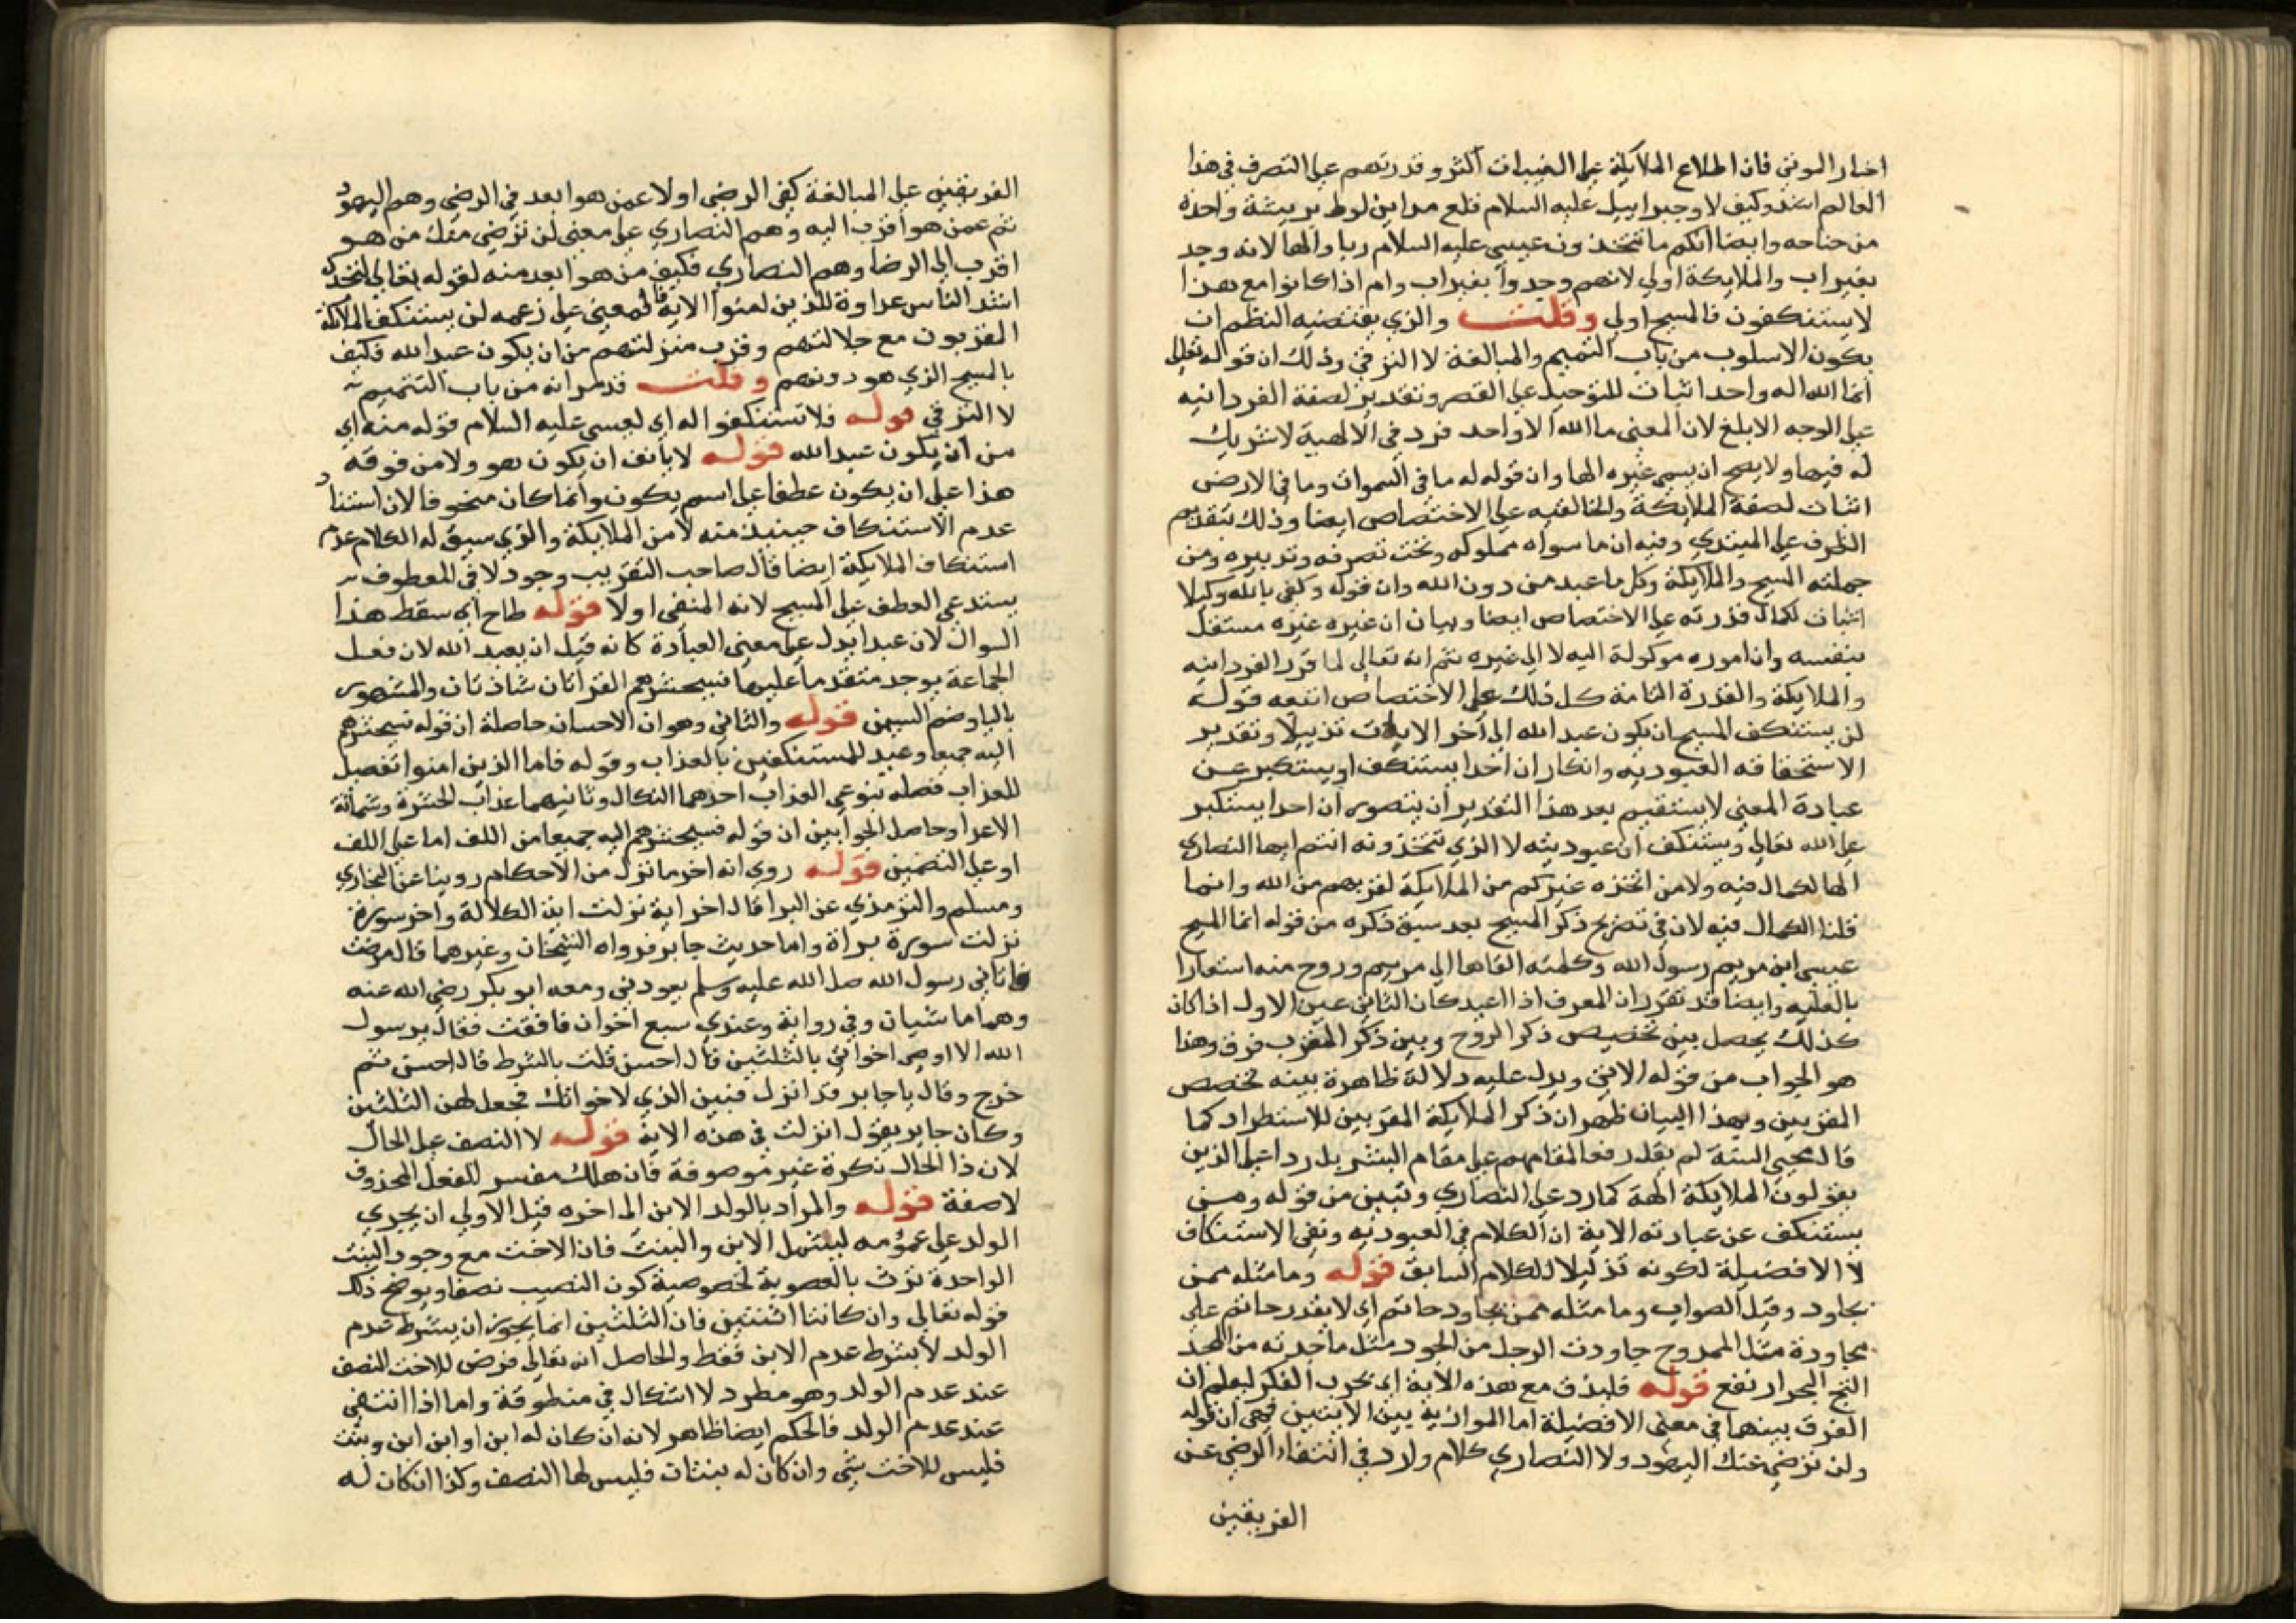 احيا الموتى فان اطلاع الملايكة على المغيبات اكثر وقدرتهم على التصرف في هذا
العالم اشد وكيف لا وجبراييل عليه السلام قلع مداين لوط بريشة واحدة
من جناحه وايضا انكم ما تتخذون عيسى عليه السلام ربا والها لانه وجد
بغير اب والملايكة اولى لانهم وجدوا بغير اب وام اذا كانوا مع هذا
لا يستنكفون فالمسيح اولى وقلت والذي يقتضيه النظم ان
يكون الاسلوب من باب التتميم والمبالغة لا الترقي وذلك ان قوله تعالى
انما الله اله واحد اثبات للتوحيد على القصر وتقدير لصفة الفردانيه
على الوجه الابلغ لان المعنى ما الله الا واحد فرد في الالهية لا شريك
له فيها ولا يصح ان يسمى غيره الها وان قوله له ما في السموات وما في الارض
اثبات لصفة الملايكة والخالقيه على الاختصاص ايضا وذلك بتقديم
الظرف على المبتدي وفيه ان ما سواه مملوكه وتحت تصرفه وتدبيره ومن
جملته المسيح والملايكة وكل ما عبد من دون الله وان قوله وكفى بالله وكيلا
اثبات لكمال قدرته على الاختصاص ايضا وبيان ان غيره غيره مستقل
بنفسه وان اموره موكولة اليه لا الى غيره ثم انه تعالى لما قرر الفردانيه
والملايكة والقدرة التامة كل ذلك على الاختصاص اتبعه قوله
لن يستنكف المسيح ان يكون عبد الله الى اخر الايات تذييلا وتقدير
الاستحقاقه العبوديه وانكار ان احدا يستنكف او يستكبر عن
عبادة المعنى لا يستقيم بعد هذا التقدير ان يتصور ان احدا يستكبر
على الله تعالى ويستنكف ان عبوديته لا الذي تتخذونه انتم ايها النصارى
الها لكمال فيه ولا من اتخذه غيركم من الملايكة لقربهم من الله وانما
قلنا الكمال فيه لان في تصريح ذكر المسيح بعد سبق ذكره من قوله انما المسيح
عيسى ابن مريم رسول الله وكلمته القاها الى مريم وروح منه استعارا
بالعليه وايضا قد تقرر ان المعرف اذا اعيد كان الثاني عين الاول اذا كان
كذلك يحصل بين تخصيص ذكر الروح وبين ذكر المقرب فرق وهذا
هو الجواب من قوله الاتي ويدل عليه دلالة ظاهرة بينه تخصص
المقربين وبهذا البيان ظهر ان ذكر الملايكة المقربين للاستطراد كما
قال محيي السنة لم يقل رفعا لمقامهم على مقام البشر بل ردا على الذين
يقولون الملايكة الهة كما رد على النصارى وتبين من قوله ومن
يستنكف عن عبادته الاية ان الكلام في العبوديه ونفي الاستنكاف
لا الافضيلة لكونه تذييلا للكلام السابق قوله وما مثله ممن
يجاود وقيل الصواب وما مثله ممن يجاود حاتم اي لا يقدر حاتم على
مجاودة مثل الممدوح جاودت الرجل من الجود مثل ماجدته من المجد
الثج البحر ارتفع قوله فليذق مع هذه الاية اي يجرب الفكر ليعلم ان
الفرق بينهما في معنى الافضيلة اما الموازية بين الايتين فهي ان قوله
ولن ترضى عنك اليهود ولا النصارى كلام وارد في انتفاء الرضى عن
الفريقين
الفريقين على المبالغة كفي الرضى اولا عمن هو ابعد في الرضى وهم اليهود
ثم عمن هو اقرب اليه وهم النصارى على معنى لن ترضى منك من هو
اقرب الى الرضا وهم النصارى فكيف من هو ابعد منه لقوله تعالى لتجدن
اشد الناس عداوة للذين امنوا الاية فالمعنى على زعمه لن يستنكف الملايكة
المقربون مع جلالتهم وقرب منزلتهم من ان يكون عبد الله فكيف
بالمسيح الذي هو دونهم وقلت قد مر انه من باب التتميم
لا الترقي قوله فلا تستنكفوا له اي لعيسى عليه السلام قوله منه اي
من ان يكون عبد الله قوله لا يانف ان يكون هو ولا من فوقه
هذا على ان يكون عطفا على اسم يكون وانما كان منخوفا لان استناد
عدم الاستنكاف حينيذ منه لا من الملايكة والذي سبق له الكلام عدم
استنكاف الملايكة ايضا قال صاحب التقريب وجود لا في المعطوف
يستدعي العطف على المسيح لانه المنفي اولا قوله طاح اي سقط هذا
السوال لان عبدا يدل على معنى العبادة كانه قيل ان يعبد الله لان فعل
الجماعة يوجد متقدما عليها فسيحشرهم القراتان شاذتان والمشهور
باليا وضم السين قوله والثاني وهو ان الاحسان حاصلة ان قوله فسيحشرهم
اليه جميعا وعيد للمستنكفين بالعذاب وقوله فاما الذين امنوا تفصيل
للعذاب فصله بنوعي العذاب احدهما النكال وثانيهما عذاب الحشرة وشماتة
الاعدا وحاصل الجوابين ان قوله فسيحشرهم اليه جميعا من اللف اما على اللف
او على التضمين قوله روي انه اخر ما نزل من الاحكام روينا عن البخاري
ومسلم والترمذي عن البرا قال اخر اية نزلت اية الكلالة واخر سورة
نزلت سورة براة واما حديث جابر فرواه الشيخان وغيرهما قال مرضت
فاتاني رسول الله صل الله عليه وسلم يعودني ومعه ابو بكر رضي الله عنه
وهما ماشيان وفي رواية وعندي سبع اخوات فافقت فقال يرسول
الله الا اوصي اخواتي بالثلثين قال احسن قلت بالشرط قال احسن ثم
خرج وقال يا جابر قد انزل فبين الذي لاخواتك فجعل لهن الثلثين
وكان جابر يقول انزلت في هذه الاية قوله لا النصف على الحال
لان ذا الحال نكرة غير موصوفة فان هلك مفسر للفعل المحذوف
لا صفة قوله والمراد بالولد الابن الى اخره قيل الاولى ان يجري
الولد على عمومه ليشمل الابن والبنت فان الاخت مع وجود البنت
الواحدة ترث بالعصوبة لخصوصية كون النصيب نصفا ويوضح ذلك
قوله تعالى وان كانتا اثنتين فان الثلثين انما يجوز ان يشرط عدم
الولد لا بشرط عدم الابن فقط والحاصل انه تعالى فرض للاخت النصف
عند عدم الولد وهو مطرد لا اشكال في منطوقة واما اذا انتفى
عند عدم الولد فالحكم ايضا ظاهر لانه ان كان له ابن او ابن ابن وبنت
فليس للاخت شي وان كان له بنتات فليس لها النصف وكذا ان كان له